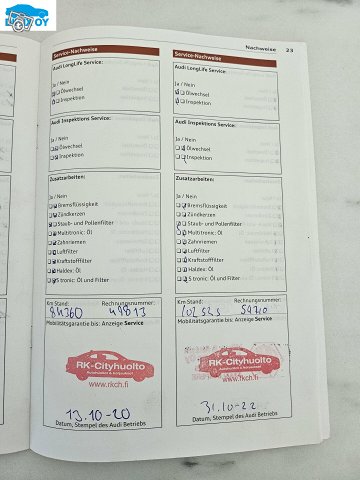 Nachweise 23
Service-Nachweise
Audi LongLife Service:
Ja / Nein
Ölwechsel
Inspektion
Audi Inspektions Service:
Ja / Nein
Ölwechsel
Inspektion
Zusatzarbeiten:
Ja / Nein
Bremsflüssigkeit
Zündkerzen
Staub- und Pollenfilter
Multitronic: Öl
Zahnriemen
Luftfilter
Kraftstofffilter
Haldex: Öl
S tronic: Öl und Filter
Km Stand: Rechnungsnummer:
84360 49813
Mobilitätsgarantie bis: Anzeige Service
RK-Cityhuolto
www.rkch.fi
13.10-20
Datum, Stempel des Audi Betriebs
Service-Nachweise
Audi LongLife Service:
Ja / Nein
Ölwechsel
Inspektion
Audi Inspektions Service:
Ja / Nein
Ölwechsel
Inspektion
Zusatzarbeiten:
Ja / Nein
Bremsflüssigkeit
Zündkerzen
Staub- und Pollenfilter
Multitronic: Öl
Zahnriemen
Luftfilter
Kraftstofffilter
Haldex: Öl
S tronic: Öl und Filter
Km Stand: Rechnungsnummer:
Mobilitätsgarantie bis: Anzeige Service
RK-Cityhuolto
www.rkch.fi
31.10-22
Datum, Stempel des Audi Betriebs